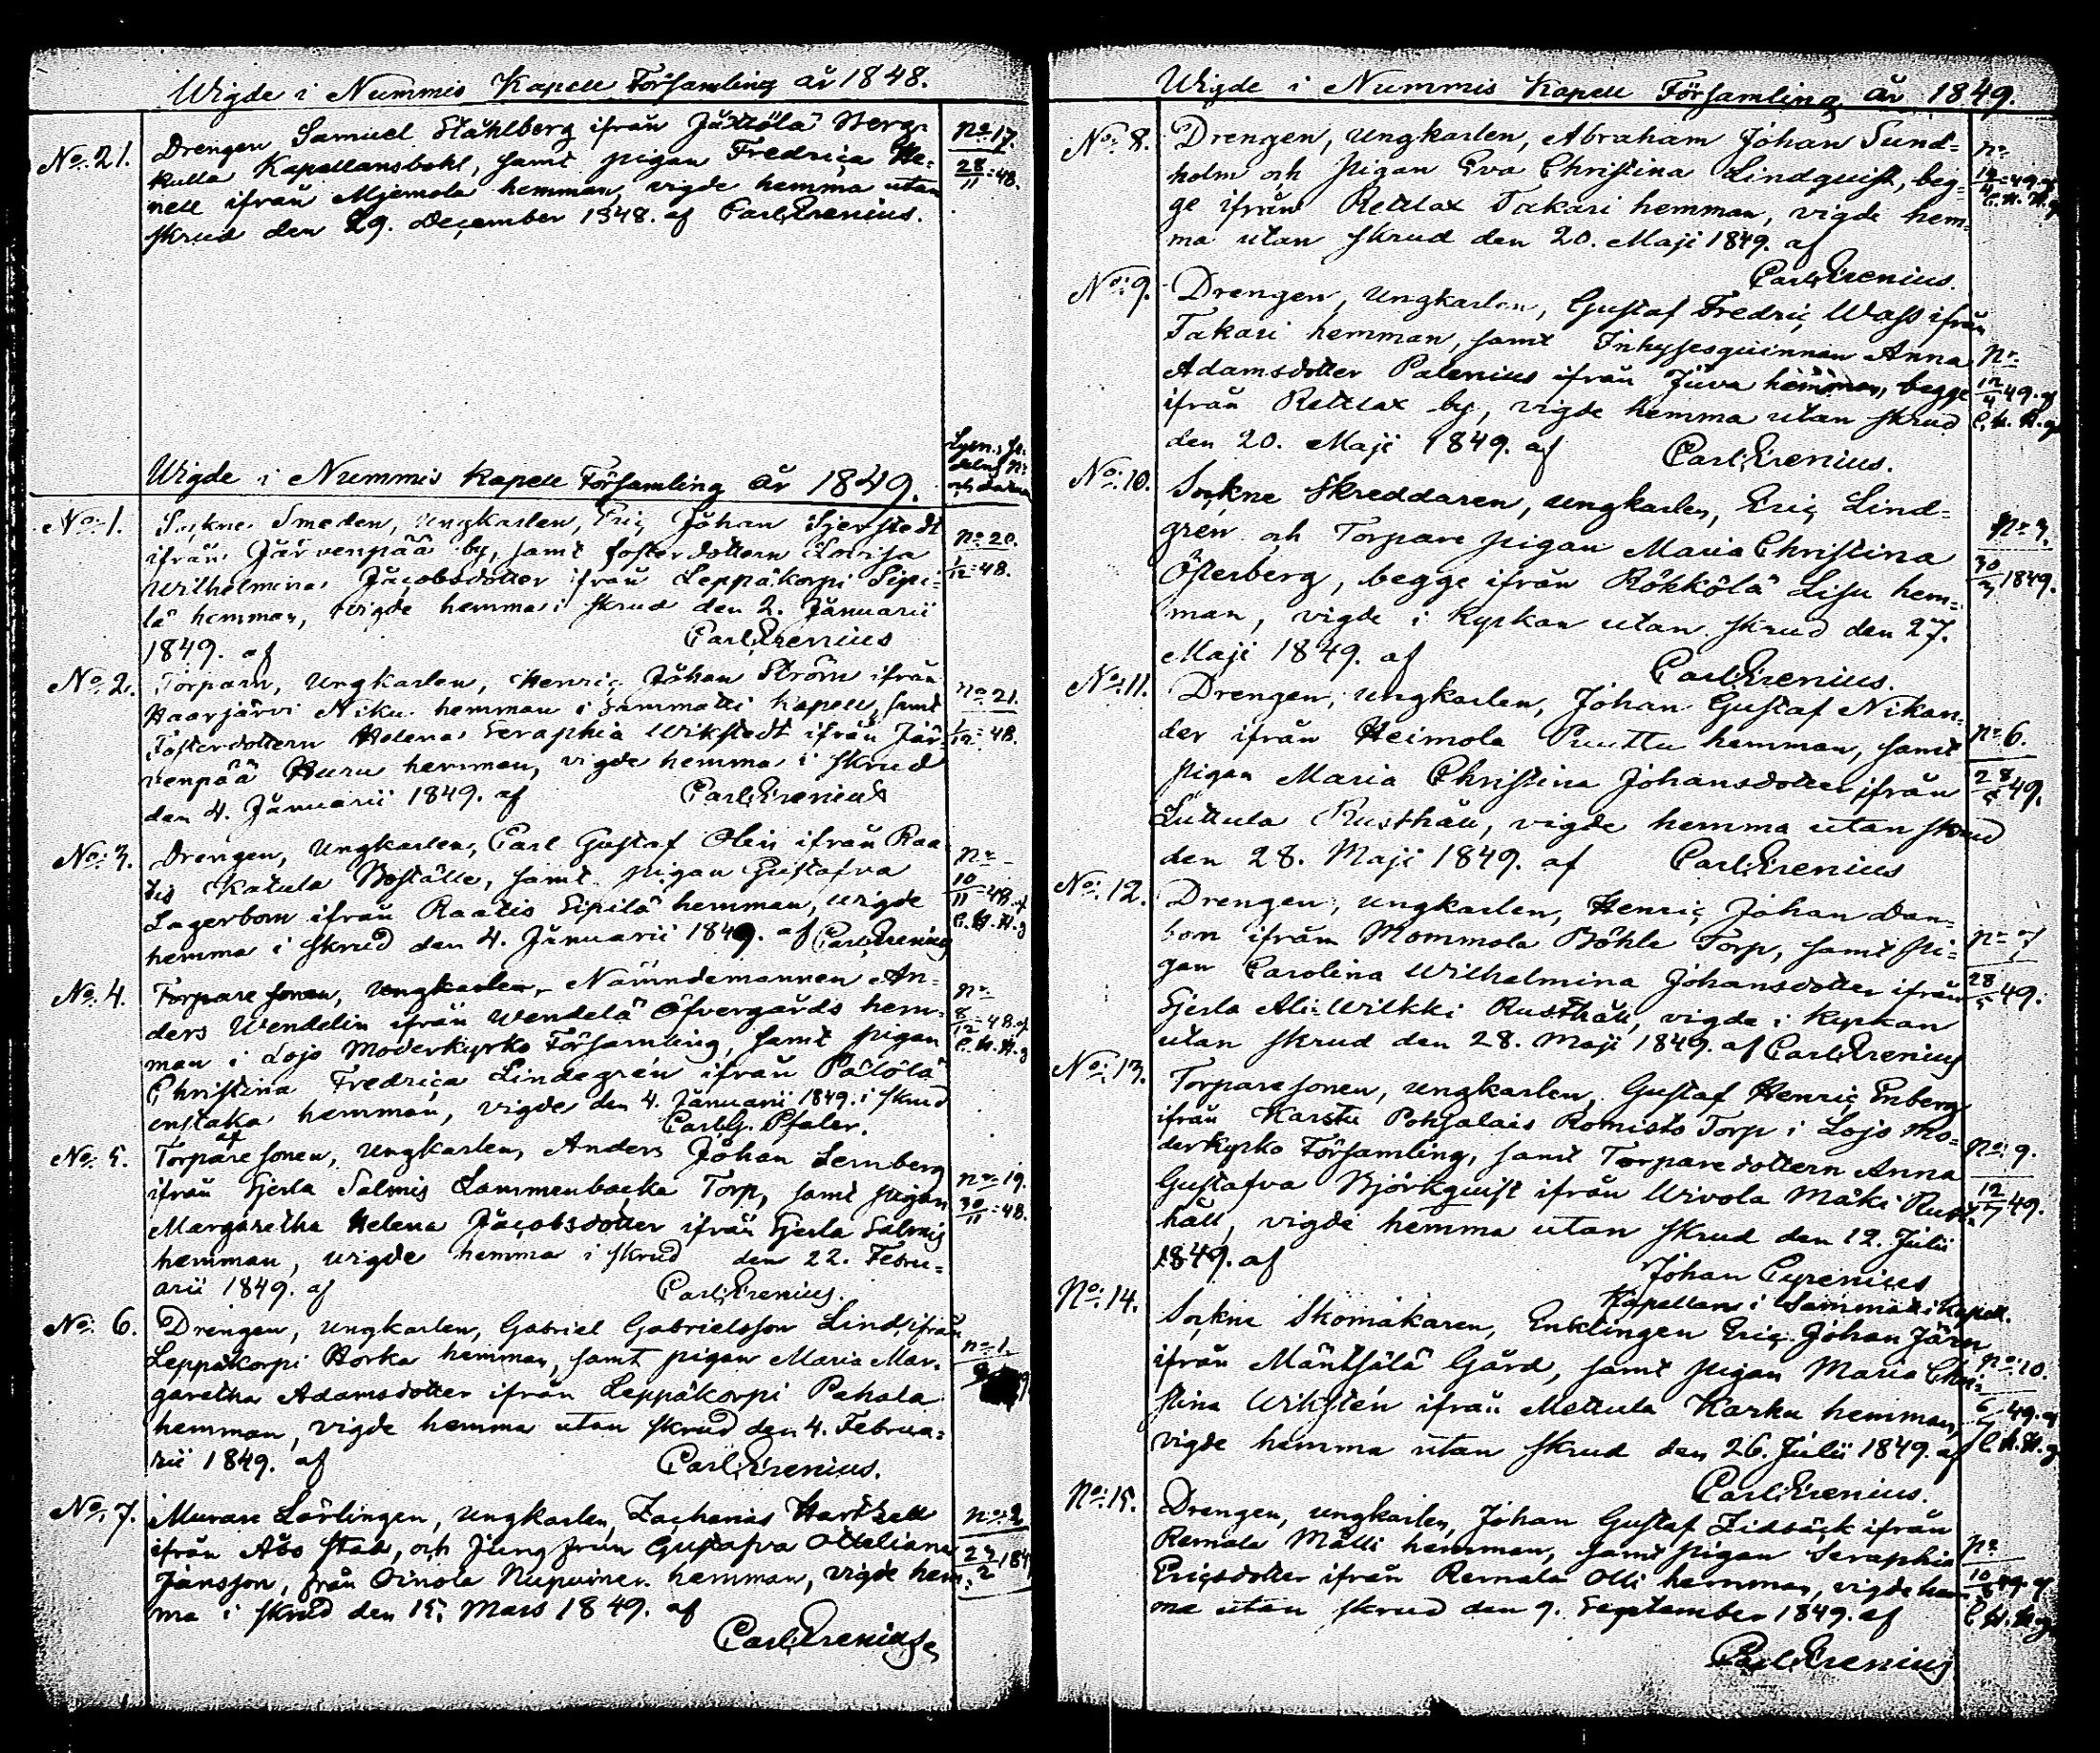 Wigde i Nummis Kapell Församling år 1848.
No: 21.
Drengen Samuel Ståhlberg ifrån Jättölä Berg-
kulla Kapellansbohl, samt pigan Fredrica He-
nell ifrån Mjemola hemman, vigde hemma utan
skrud den 29. December 1848. af Carl Erenius.
no 17.
28/11 = 48.
Wigde i Nummis Kapell Församling år 1849.
Lysn. se-
delns No
och datum
No: 1.
Sockne Smeden, ungkarlen, Eric Johan Sjerstedt
ifrån Järvenpää by, samt fosterdottern Lovisa
Wilhelmina Jacobsdotter ifrån Leppäkorpi Sipi-
lä hemman, vigde hemma i skrud den 2. Januarii
1849. af Carl Erenius
no 20.
1/12 = 48.
No: 2.
Torparn, ungkarlen, Henric Johan Ström ifrån
Haarjärvi Niku hemman i Sammatti Kapell, samt
Fosterdottern Helena Seraphia Wikstedt ifrån Jär-
venpää Huru hemman, vigde hemma i skrud
den 4. Januarii 1849. af Carl Erenius
no 21.
1/12 = 48.
No: 3.
Drengen, ungkarlen, Carl Gustaf Olin ifrån Raa-
tis Katula Boställe, samt pigan Gustafva
Lagerbom ifrån Raatis Sipilä hemman, vigde
hemma i skrud den 4. Januarii 1849. af Carl Erenius
no
10/11 = 48. af
C. H. H-g
No: 4.
Torpare sonen, ungkarlen, Nämndemannen An-
ders Wendelin ifrån Wendelä Öfvergårds hem-
man i Lojo Moderkyrko Församling, samt pigan
Christina Fredrica Lindegrén ifrån Pälölä
enstaka hemman, vigde den 4. Januarii 1849. i skrud
af Carl G. Pfaler.
no
8/12 = 48. af
C. H. H-g
No: 5.
Torpare sonen, ungkarlen, Anders Johan Lernberg
ifrån Hjerla Salmis Lammenbacka Torp, samt pigan
Margaretha Helena Jacobsdotter ifrån Hjerla Salmis
hemman, vigde hemma i skrud den 22. Febru-
arii 1849. af Carl Erenius.
no 19.
30/11 = 48.
No: 6.
Drengen, ungkarlen, Gabriel Gabrielsson Lind, ifrån
Leppäkorpi Horka hemman, samt pigan Maria Mar-
garetha Adamsdotter ifrån Leppäkorpi Pahala
hemman, vigde hemma utan skrud den 4. Februa-
rii 1849. af Carl Erenius.
no 1.
No: 7.
Murare Lärlingen, ungkarlen, Zacharias Hartzell
ifrån Åbo stad, och Jungfrun Gustafva Otteliana
Jansson, från Oinola Nupuinen hemman, vigde hem-
ma i skrud den 15. Mars 1849. af
Carl Erenius
no: 2
Wigde i Nummis Kapell Församling år 1849.
No: 8.
Drengen, ungkarlen, Abraham Johan Sund-
holm och pigan Eva Christina Lindquist, beg-
ge ifrån Rettlax Takari hemman, vigde hem-
ma utan skrud den 20. Maji 1849. af
Carl Erenius.
no
12/4 = 49. af
C. H. H-g
No: 9.
Drengen, ungkarlen, Gustaf Fredric Wass ifrån
Takari hemman, samt Inhysesquinnan Anna
Adamsdotter Palenius ifrån Juva hemman, begge
ifrån Rettlax by, vigde hemma utan skrud
den 20. Maji 1849. af Carl Erenius.
no
12/4 49. af
C. H. H-g
No: 10.
Sockne Skreddaren, ungkarlen, Eric Lind-
grén och Torpare pigan Maria Christina
Österberg, begge ifrån Rökkölä Lisu hem-
man, vigde i Kyrkan utan skrud den 27.
Maji 1849. af Carl Erenius.
no 3.
30/3 1849.
No: 11.
Drengen, ungkarlen, Johan Gustaf Nikan-
der ifrån Heimola Puuttu hemman, samt
pigan Maria Christina Johansdotter ifrån
Luttula Rusthåll, vigde hemma utan skrud
den 28. Maji 1849. af Carl Erenius
no 6.
28/5 49.
No: 12.
Drengen, ungkarlen, Henric Johan Dan-
bom ifrån Mommola Böhle Torp, samt pi-
gan Carolina Wilhelmina Johansdotter ifrån
Hjerla Ali-Wilkki Rusthåll, vigde i Kyrkan
utan skrud den 28. Maji 1849. af Carl Erenius
no 7
28/5 49.
No: 13.
Torpare sonen, ungkarlen, Gustaf Henric Enberg
ifrån Karstu Pohjalais Romisto Torp i Lojo Mo-
derkyrko Församling, samt Torpare dottern Anna
Gustafva Björkquist ifrån Uivola Mäki Rust-
håll, vigde hemma utan skrud den 12. Julii
1849. af Johan Cyrenius
Kapellan i Sammatti Kapell.
no: 9.
12/7 49.
No: 14.
Sockne Skomakaren, Enklingen Eric Johan Järn
ifrån Mäntsälä Gård, samt pigan Maria Chri-
stina Wikstén ifrån Mettula Karku hemman,
vigde hemma utan skrud den 26. Julii 1849. af
Carl Erenius.
no: 10.
6/7 49. af
C. H. H-g
No: 15.
Drengen, ungkarlen, Johan Gustaf Lidbäck ifrån
Remala Mälli hemman, samt pigan Seraphia
Ericsdotter ifrån Remala Olli hemman, vigde hem-
ma utan skrud den 9. September 1849. af
Carl Erenius
no
10/8 49. af
C. H. H-g